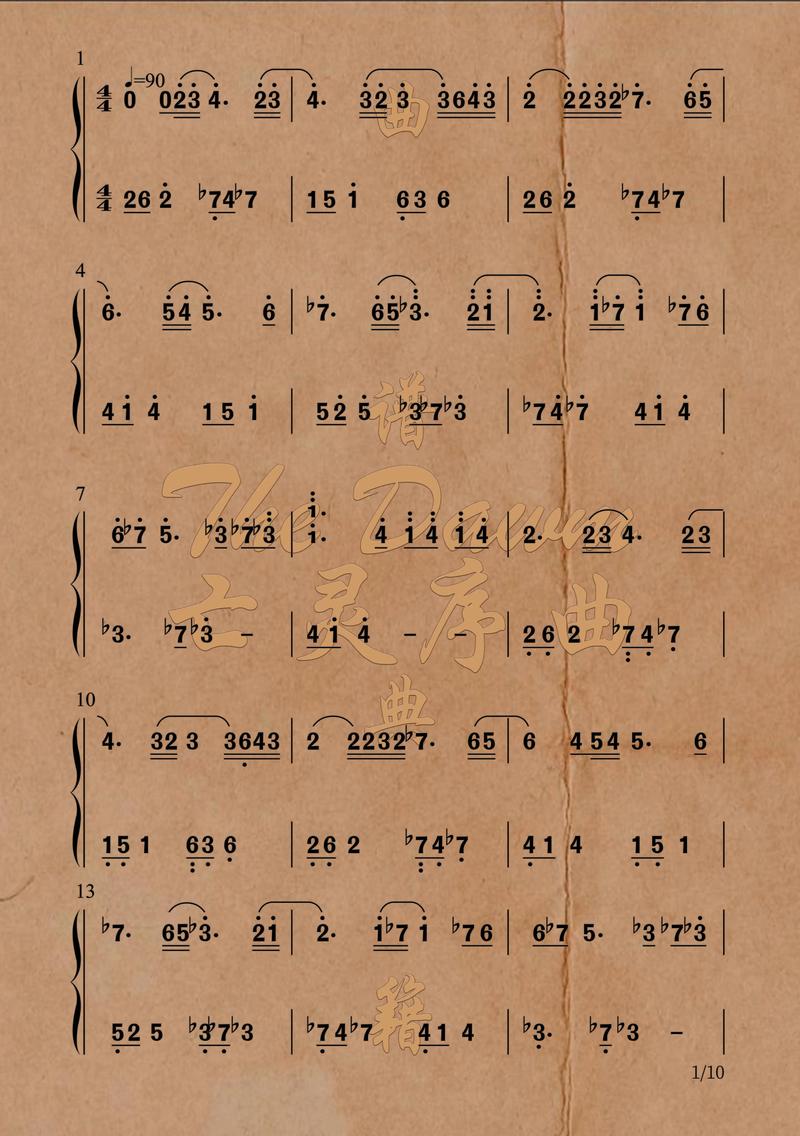 1
♩=90
4/4 0 023 4. 23 | 4. 32 3 3643 | 2 2232♭7. 65 |
4/4 26 2 ♭74♭7 | 15 1 63 6 | 26 2 ♭74♭7 |
曲
4
6. 54 5. 6 | ♭7. 65♭3. 21 | 2. 1♭7 1 ♭76 |
41 4 15 1 | 52 5 ♭3♭7♭3 | ♭74♭7 41 4 |
谱
The Dawn
7
6♭7 5. ♭3♭7♭3 | 1. 1. 4 14 14 | 2. 23 4. 23 |
亡灵序曲
♭3. ♭7♭3 – | 41 4 – – | 26 2 ♭74♭7 |
典
10
4. 32 3 3643 | 2 2232♭7. 65 | 6 454 5. 6 |
15 1 63 6 | 26 2 ♭74♭7 | 41 4 15 1 |
13
♭7. 65♭3. 21 | 2. 1♭7 1 ♭76 | 6♭7 5. ♭3♭7♭3 |
籍
52 5 ♭3♭7♭3 | ♭74♭7 41 4 | ♭3. ♭7♭3 – |
1/10